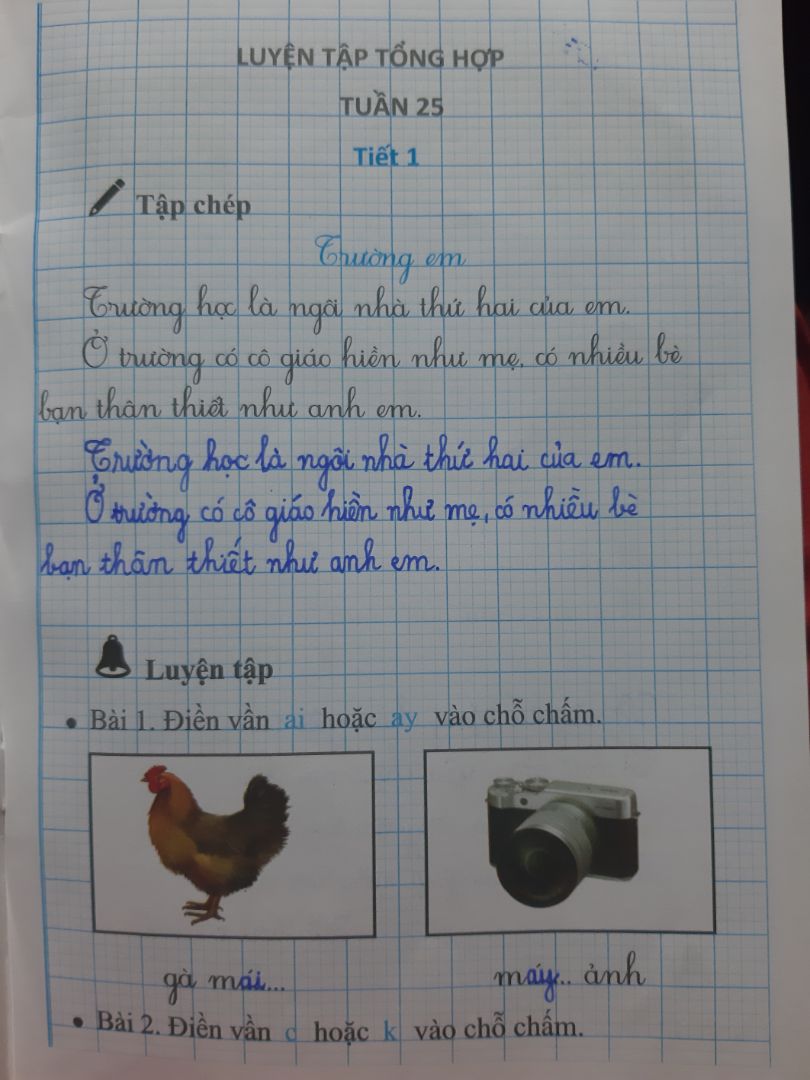 LUYỆN TẬP TỔNG HỢP
TUẦN 25
Tiết 1
Tập chép
Trường em
Trường học là ngôi nhà thứ hai của em.
Ở trường có cô giáo hiền như mẹ, có nhiều bè
bạn thân thiết như anh em.
Trường học là ngôi nhà thứ hai của em.
Ở trường có cô giáo hiền như mẹ, có nhiều bè
bạn thân thiết như anh em.
Luyện tập
• Bài 1. Điền vần ai hoặc ay vào chỗ chấm.
gà mái...
máy.. ảnh
• Bài 2. Điền vần c hoặc k vào chỗ chấm.